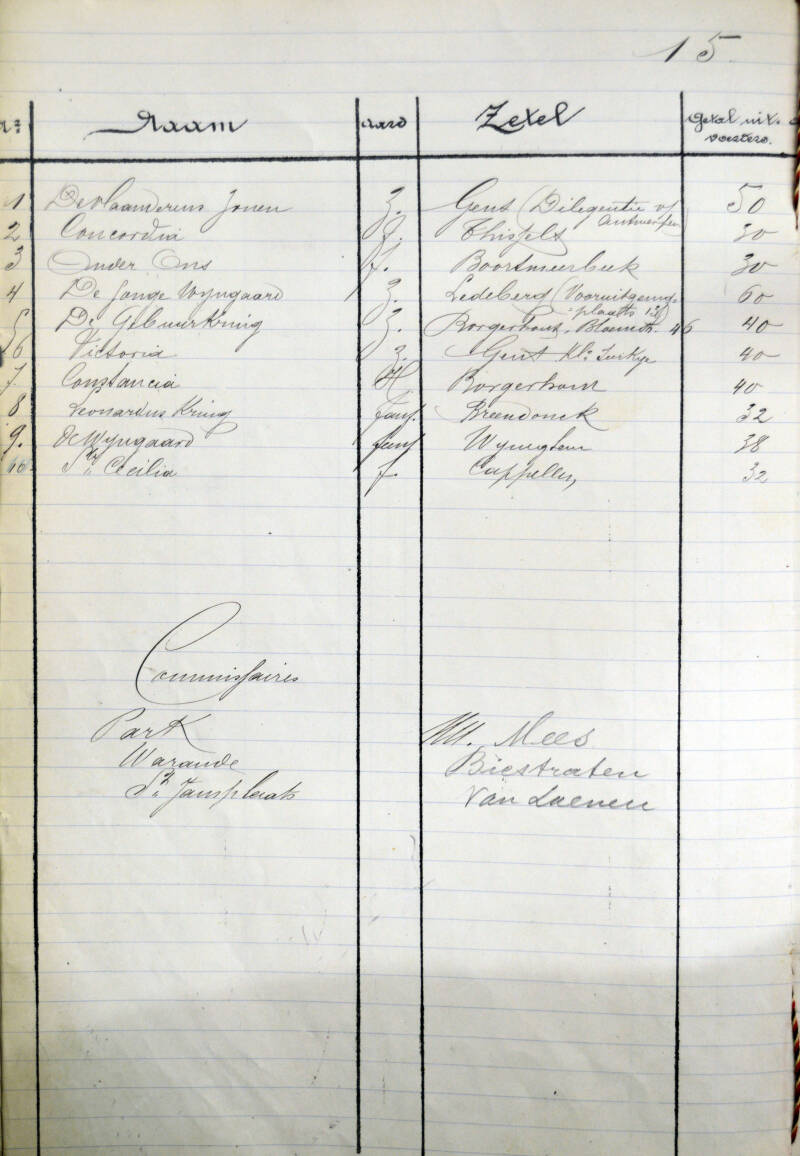 15
Nr: Naam aard Zetel Getal uitvoerers.
1 De Vlaanderens Zonen Z. Gent (Dilegentie v/ Antwerpen) 50
2 Concordia f. Thisselt 30
3 Onder Ons f. Boortmeerbeek 30
4 De Jonge Wyngaard Z. Ledeberg (Vooruitgang-
=plaats 13) 60
5 De Gebuurkring Z. Borgerhout, Bloemstr. 46 40
6 Victoria Z. Gent Kln Turkye 40
7. Constancia H Borgerhout 40
8 Leonardus Kring fanf. Breendonck 32
9. De Wyngaard fanf Wyneghem 38
10 St Cecilia f. Cappellen, 32
Commissaires
Park MM. Mees
Warande Biestraten
St Jansplaats Van Laenen